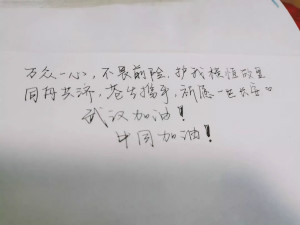 万众一心，不畏前险，护我桂恒故里
同舟共济，苍生携手，祈愿一世长安。
武汉加油！
中国加油！